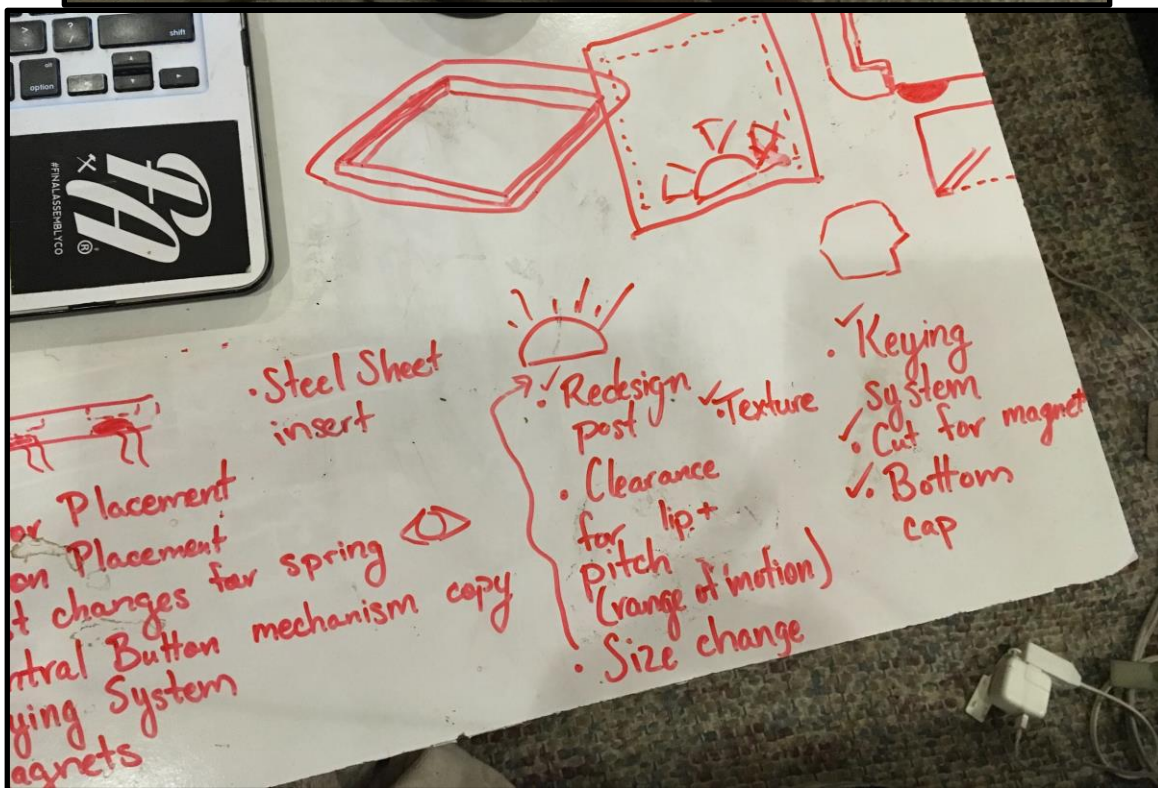 shift
option
alt
#FINALASSEMBLYCO
FA
®
• Steel Sheet
insert
or Placement
on Placement
t changes for spring
ntral Button mechanism copy
ying System
agnets
✓• Redesign
post
✓• Texture
• Clearance
for lip +
pitch
(range of motion)
• Size change
✓• Keying
system
✓• Cut for magnet
✓• Bottom
cap